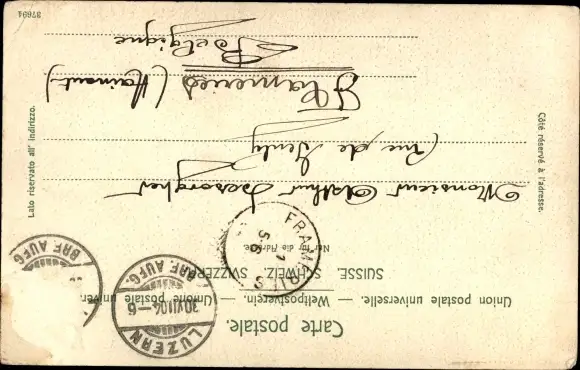 Carte postale.
Union postale universelle. — Weltpostverein. — Unione postale univer
SUISSE. SCHWEIZ. SVIZZERA
Nur für die Adresse.
Côté réservé à l'adresse.
Lato riservato all' indirizzo.
LUZERN
30.VII.04-6
BRF. AUFG.
BRF. AUFG
FRAMERIES
1
Monsieur Arthur
rue de
Frameries (Hainaut)
Belgique
37694